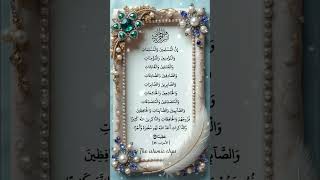 إِنَّ الْمُسْلِمِينَ وَالْمُسْلِمَاتِ
وَالْمُؤْمِنِينَ وَالْمُؤْمِنَاتِ
وَالْقَانِتِينَ وَالْقَانِتَاتِ
وَالصَّادِقِينَ وَالصَّادِقَاتِ
وَالصَّابِرِينَ وَالصَّابِرَاتِ
وَالْخَاشِعِينَ وَالْخَاشِعَاتِ
وَالْمُتَصَدِّقِينَ وَالْمُتَصَدِّقَاتِ
وَالصَّائِمِينَ وَالصَّائِمَاتِ وَالْحَافِظِينَ
فُرُوجَهُمْ وَالْحَافِظَاتِ وَالذَّاكِرِينَ اللَّهَ كَثِيرًا
وَالذَّاكِرَاتِ أَعَدَّ اللَّهُ لَهُم مَّغْفِرَةً وَأَجْرًا
عَظِيمًا
The islamic